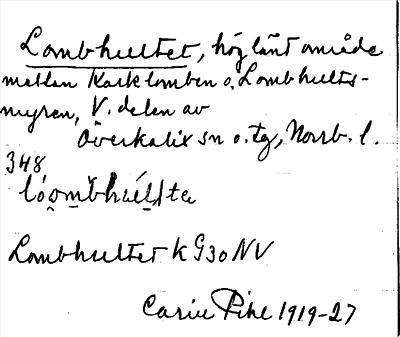 Lombhultet, höglänt område
mellan Karklomben o. Lombhults-
myren, V. delen av
Överkalix sn o. tg, Norrb. l.
348
Lombhultet K G30 NV
Carin Pihl 1919-27